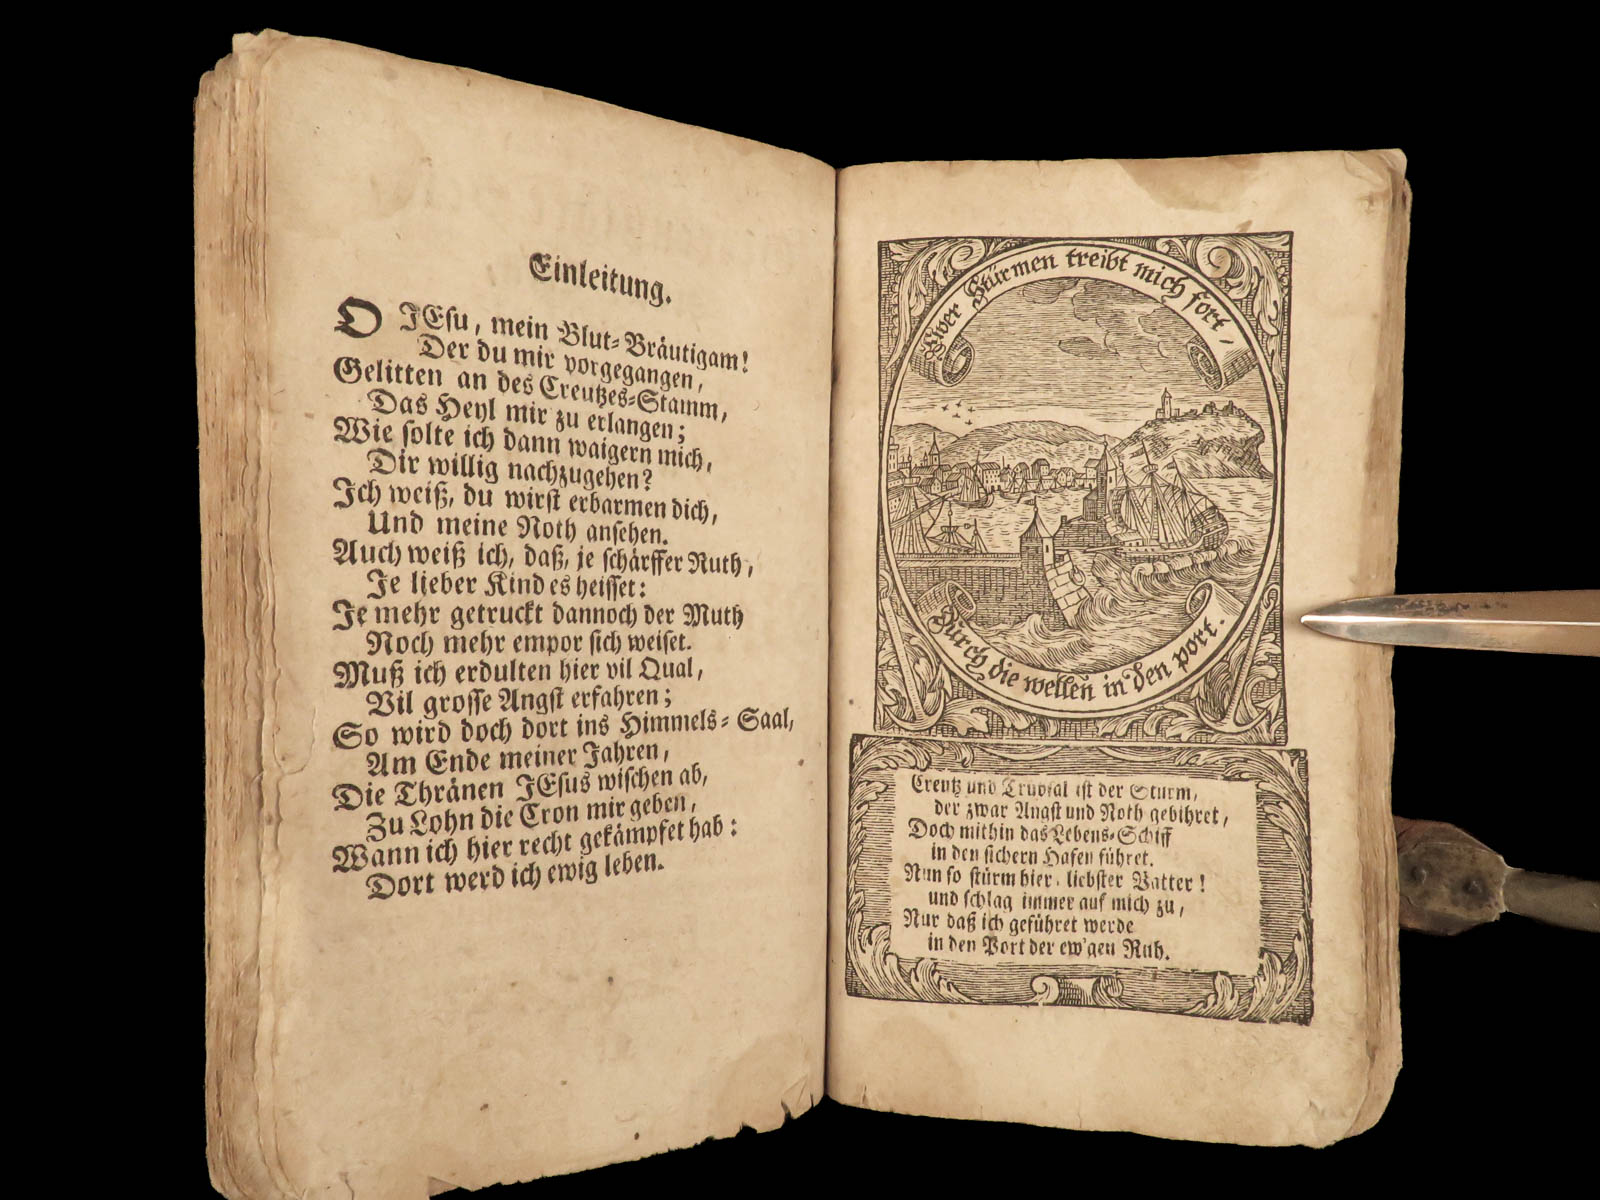 Einleitung.
O JEsu, mein Blut-Bräutigam!
Der du mir vorgegangen,
Gelitten an des Creutzes-Stamm,
Das Heyl mir zu erlangen;
Wie solte ich dann waigern mich,
Dir willig nachzugehen?
Ich weiß, du wirst erbarmen dich,
Und meine Noth ansehen.
Auch weiß ich, daß, je schärffer Ruth,
Je lieber Kind es heisset:
Je mehr getruckt dannoch der Muth
Noch mehr empor sich weiset.
Muß ich erdulten hier vil Qual,
Vil grosse Angst erfahren;
So wird doch dort ins Himmels-Saal,
Am Ende meiner Jahren,
Die Thränen JEsus wischen ab,
Zu Lohn die Cron mir geben,
Wann ich hier recht gekämpfet hab:
Dort werd ich ewig leben.
Ewer Stürmen treibt mich fort,
Durch die wellen in den port.
Creutz und Trübsal ist der Sturm,
der zwar Angst und Noth gebihret,
Doch mithin das Lebens-Schiff
in den sichern Hafen führet.
Nun so stürm hier, liebster Vatter!
und schlag immer auf mich zu,
Nur daß ich geführet werde
in den Port der ew'gen Ruh.